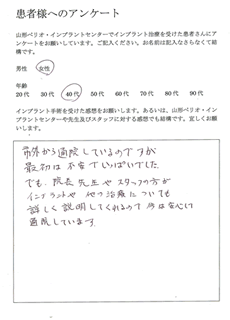 患者様へのアンケート
山形ペリオ・インプラントセンターでインプラント治療を受けた患者さんにア
ンケートをお願いしています。ご記入ください。お名前は記入なさらなくて結
構です。
男性 女性
年齢
20 代 30 代 40 代 50 代 60 代 70 代 80 代 90 代
インプラント手術を受けた感想をお願いします。あるいは、山形ペリオ・イン
プラントセンターや先生及びスタッフに対する感想でも結構です。宜しくお願
いします。
市外から通院しているのですが
最初は不安でいっぱいでした。
でも、院長先生やスタッフの方が
インプラントや他の治療についても
詳しく説明してくれるので今は安心して
通院しています。